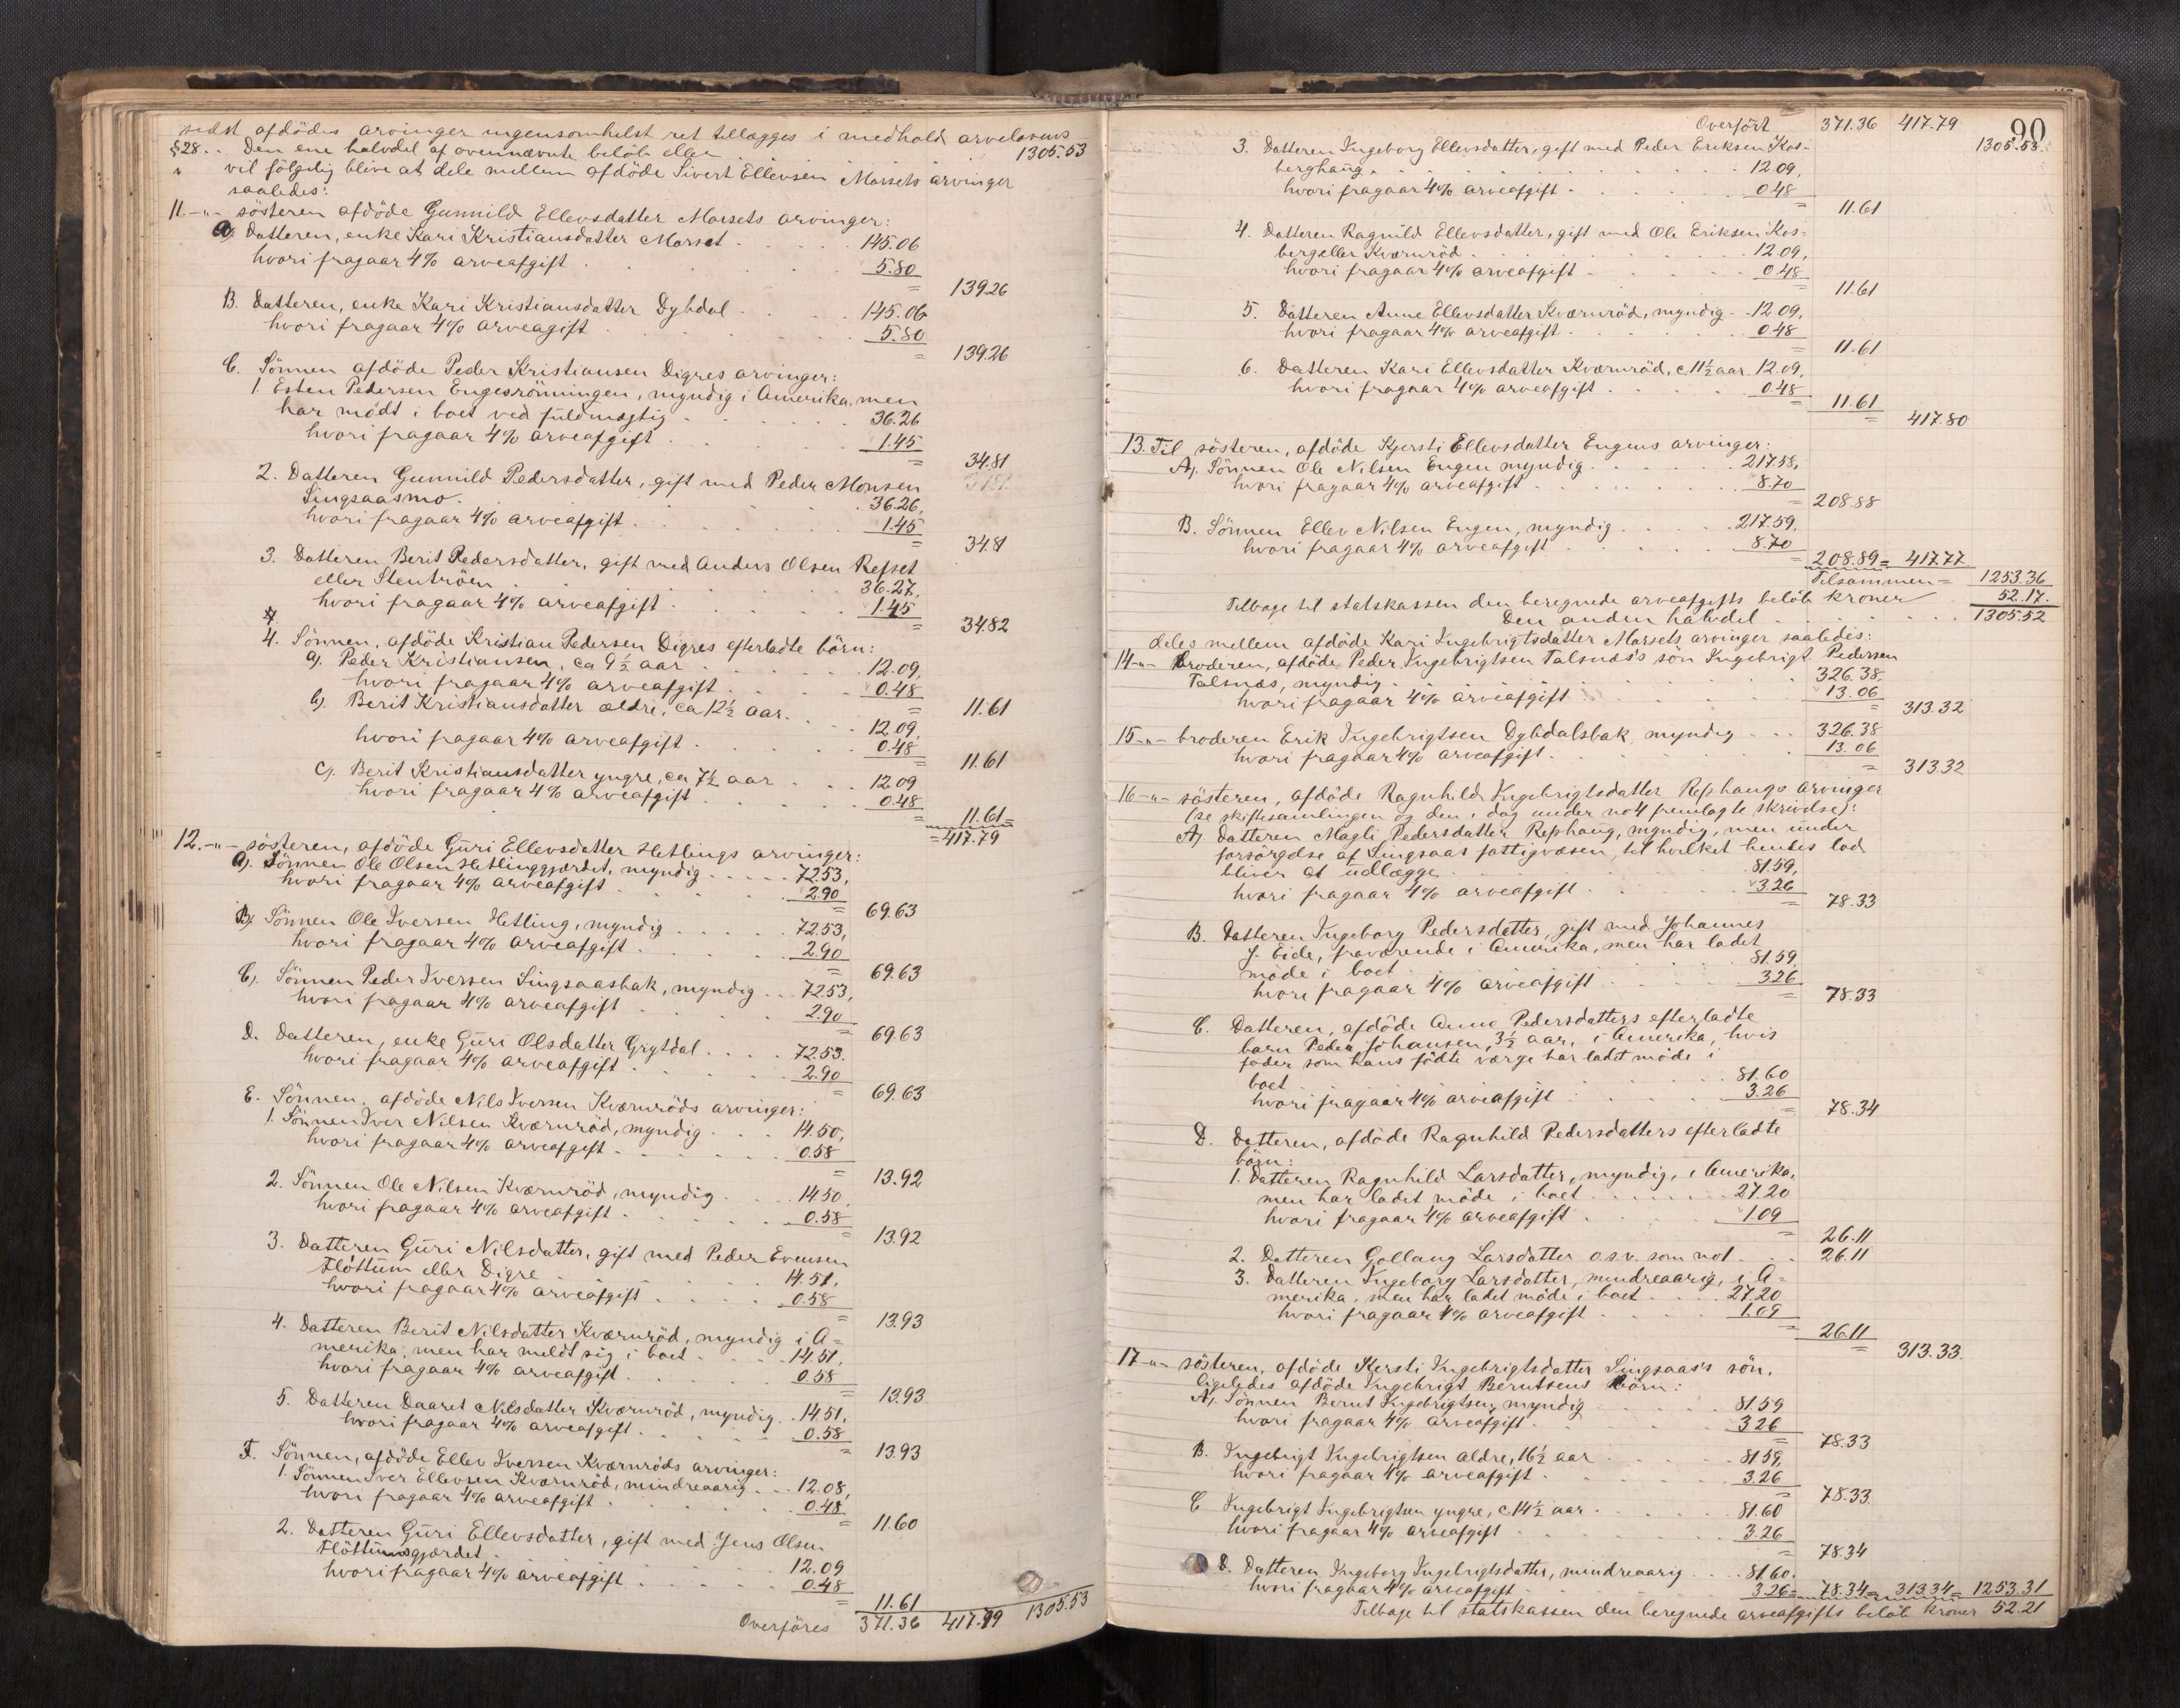 sidst afdödes arvinger ingensomhelst ret tillægges i medhold arvelovens
§28. . Den ene halvdel af ovennævnte beløb eller . . . . . 1305.53
vil fölgelig blive at dele mellem afdöde Sivert Ellevsen Morsets arvinger
saaledes:
11 -"- sösteren afdöde Gunnild Ellevsdatter Morsets arvinger:
A). Datteren, enke Kari Kristiansdatter Morset . . . . . 145.06
hvori fragaar 4% arveafgift . . . 5.80
= 139.26
B. Datteren, enke Kari Kristiansdatter Dybdal . . . . 145.06
hvori fragaar 4% arveagift . . . 5.80
= 139.26
C. Sönnen afdöde Peder Kristiansen Digres arvinger:
1. Esten Pedersen Engesrönningen, myndig i Amerika, men
har mödt i boet ved fuldmægtig . . . . . 36.26
hvori fragaar 4% arveafgift . . . 1.45
= 34.81
2. Datteren Gunnild Pedersdatter, gift med Peder Monsen
Singsaasmo . . . 36.26,
hvori fragaar 4% arveafgift . . . . . 1.45
= 34.81
3. Datteren Berit Pedersdatter, gift med Anders Olsen Refset
eller Stentröen . . . 36.27,
hvori fragaar 4% arveafgift . . . . . 1.45
= 34.82
4. Sönnen, afdöde Kristian Pedersen Digres efterladte börn:
a). Peder Kristiansen, ca 9½ aar . . . 12.09,
hvori fragaar 4% arveafgift . . . . 0.48
= 11.61
b). Berit Kristiansdatter ældre, ca 12½ aar. . . 12.09,
hvori fragaar 4% arveafgift . . . . . 0.48
= 11.61
c). Berit Kristiansdatter yngre, ca 7½ aar . . . 12.09
hvori fragaar 4% arveafgift . . . . . 0.48
= 11.61 =
= 417.79
12. -"- sösteren, afdöde Guri Ellevsdatter Hetlings arvinger:
A). Sönnen Ole Olsen Hetlinggjærdet, myndig . . . . . 72.53,
hvori fragaar 4% arveafgift . . . . . 2.90
= 69.63
B). Sönnen Ole Iversen Hetling, myndig . . . . . 72.53,
hvori fragaar 4% arveafgift . . . . 2.90
= 69.63
C). Sönnen Peder Iversen Singsaasbak, myndig . . 72.53,
hvori fragaar 4% arveafgift . . . . . 2.90
= 69.63
D. Datteren, enke Guri Olsdatter Grytdal . . . . 72.53.
hvori fragaar 4% arveafgift . . . . . 2.90
= 69.63
E. Sönnen, afdöde Nils Iversen Kværnröds arvinger:
1. Sönnen Iver Nilsen Kværnröd, myndig . . . 14.50,
hvori fragaar 4% arveafgift . . . . . . 0.58
= 13.92
2. Sönnen Ole Nilsen Kværnröd, myndig . . . . 14.50,
hvori fragaar 4% arveafgift . . . . . 0.58
= 13.92
3. Datteren Guri Nilsdatter, gift med Peder Evensen
Flöttum eller Digre . . . . . . 14.51,
hvori fragaar 4% arveafgift . . . . . 0.58
= 13.93
4. Datteren Berit Nilsdatter Kværnröd, myndig i A=
merika, men har meldt sig i boet . . . . 14.51,
hvori fragaar 4% arveafgift . . . . . 0.58
= 13.93
5. Datteren Daaret Nilsdatter Kværnröd, myndig . . 14.51,
hvori fragaar 4% arveafgift . . . . . 0.58
= 13.93
F. Sönnen, afdöde Ellev Iversen Kværnröds arvinger:
1. Sönnen Iver Ellevsen Kværnröd, mindreaarig . . . 12.08,
hvori fragaar 4% arveafgift . . . . . 0.48
= 11.60
2. Datteren Guri Ellevsdatter, gift med Jens Olsen
Flöttumsgjærdet . . . 12.09
hvori fragaar 4% arveafgift . . . . . 0.48
= 11.61
Overføres 371.36 417.79 1305.53
90
Overfört 371.36 417.79 1305.53.
3. Datteren Ingeborg Ellevsdatter, gift med Peder Eriksen Kos=
berghaug . . . . . . . 12.09,
hvori fragaar 4% arveafgift . . . . 0.48
= 11.61
4. Datteren Ragnild Ellevsdatter, gift med Ole Eriksen Kos=
berg eller Kværnröd . . . . . . 12.09,
hvori fragaar 4% arveafgift . . . . 0.48
= 11.61
5. Datteren Anne Ellevsdatter Kværnröd, myndig . . 12.09,
hvori fragaar 4% arveafgift . . . . . 0.48
= 11.61
6. Datteren Kari Ellevsdatter Kværnröd, c. 11½ aar 12.09,
hvori fragaar 4% arveafgift . . . . 0.48
= 11.61
= 417.80
13. Til sösteren, afdöde Kjersti Ellevsdatter Engens arvinger:
A). Sönnen Ole Nilsen Engen myndig . . . . . 217.58,
hvori fragaar 4% arveafgift . . . . . 8.70
= 208.88
B. Sönnen Ellev Nilsen Engen, myndig . . . . 217.59,
hvori fragaar 4% arveafgift . . . . . 8.70
= 208.89 = 417.77
Tilsammen = 1253.36
Tilbage til statskassen den beregnede arveafgifts belöb kroner 52.17.
Den anden halvdel . . . . . . 1305.52
deles mellem afdöde Kari Ingebrigtsdatter Morsets arvinger saaledes:
14 -"- broderen, afdöde Peder Ingebrigtsen Talsnæs's sön Ingebrigt Pedersen
Talsnæs, myndig . . . . . 326.38,
hvori fragaar 4% arveafgift . . . . . 13.06
= 313.32
15 -"- broderen Erik Ingebrigtsen Dybdalsbak, myndig . . . 326.38
hvori fragaar 4% arveafgift . . . 13.06
= 313.32
16 -"- sösteren, afdöde Ragnhild Ingebrigtsdatter Rephaugs arvinger
(se skiftesamlingen og den i dag under no 4 fremlagte skrivelse):
A). Datteren Magli Pedersdatter Rephaug, myndig, men under
forsörgelse af Singsaas fattigvæsen, til hvilket hendes lod
bliver at udlægge . . . . . 81.59,
hvori fragaar 4% arveafgift . . . . . 3.26
= 78.33
B. Datteren Ingeborg Pedersdatter, gift med Johannes
J. Eide, fraværende i Amerika, men har ladet
möde i boet . . . . 81.59,
hvori fragaar 4% arveafgift . . . . 3.26
= 78.33
C. Datteren, afdöde Anne Pedersdatters efterladte
barn Peder Johansen, 3½ aar, i Amerika, hvis
fader som hans födte værge har ladet möde i
boet . . . . . . 81.60
hvori fragaar 4% arveafgift . . . . . 3.26
= 78.34
D. Datteren, afdöde Ragnhild Pedersdatters efterladte
börn:
1. Datteren Ragnhild Larsdatter, myndig, i Amerika,
men har ladet möde i boet . . . . . . 27.20
hvori fragaar 4% arveafgift . . . . 1.09
= 26.11
2. Datteren Gollaug Larsdatter o.s.v. som no 1 . . . 26.11
3. Datteren Ingeborg Larsdatter, mindreaarig, i A=
merika, men har ladet möde i boet . . . . 27.20
hvori fragaar 4% arveafgift . . . . 1.09
= 26.11
= 313.33.
17 -"- sösteren, afdöde Kersti Ingebrigtsdatter Singsaas's sön,
ligeledes afdöde Ingebrigt Berntsens börn:
A). Sönnen Bernt Ingebrigtsen myndig . . . . . 81.59
hvori fragaar 4% arveafgift . . . . . 3.26
= 78.33
B. Ingebrigt Ingebrigtsen ældre, 16½ aar . . . . 81.59,
hvori fragaar 4% arveafgift . . . . . 3.26
= 78.33
C Ingebrigt Ingebrigtsen yngre, c 14½ aar . . . . 81.60
hvori fragaar 4% arveafgift . . . . . 3.26
= 78.34
D. Datteren Ingeborg Ingebrigtsdatter, mindreaarig . . . 81.60.
hvori fragaar 4% arveafgift . . . . . 3.26 = 78.34 = 313.34 = 1253.31
Tilbage til statskassen den beregnede arveafgifts belöb kroner 52.21